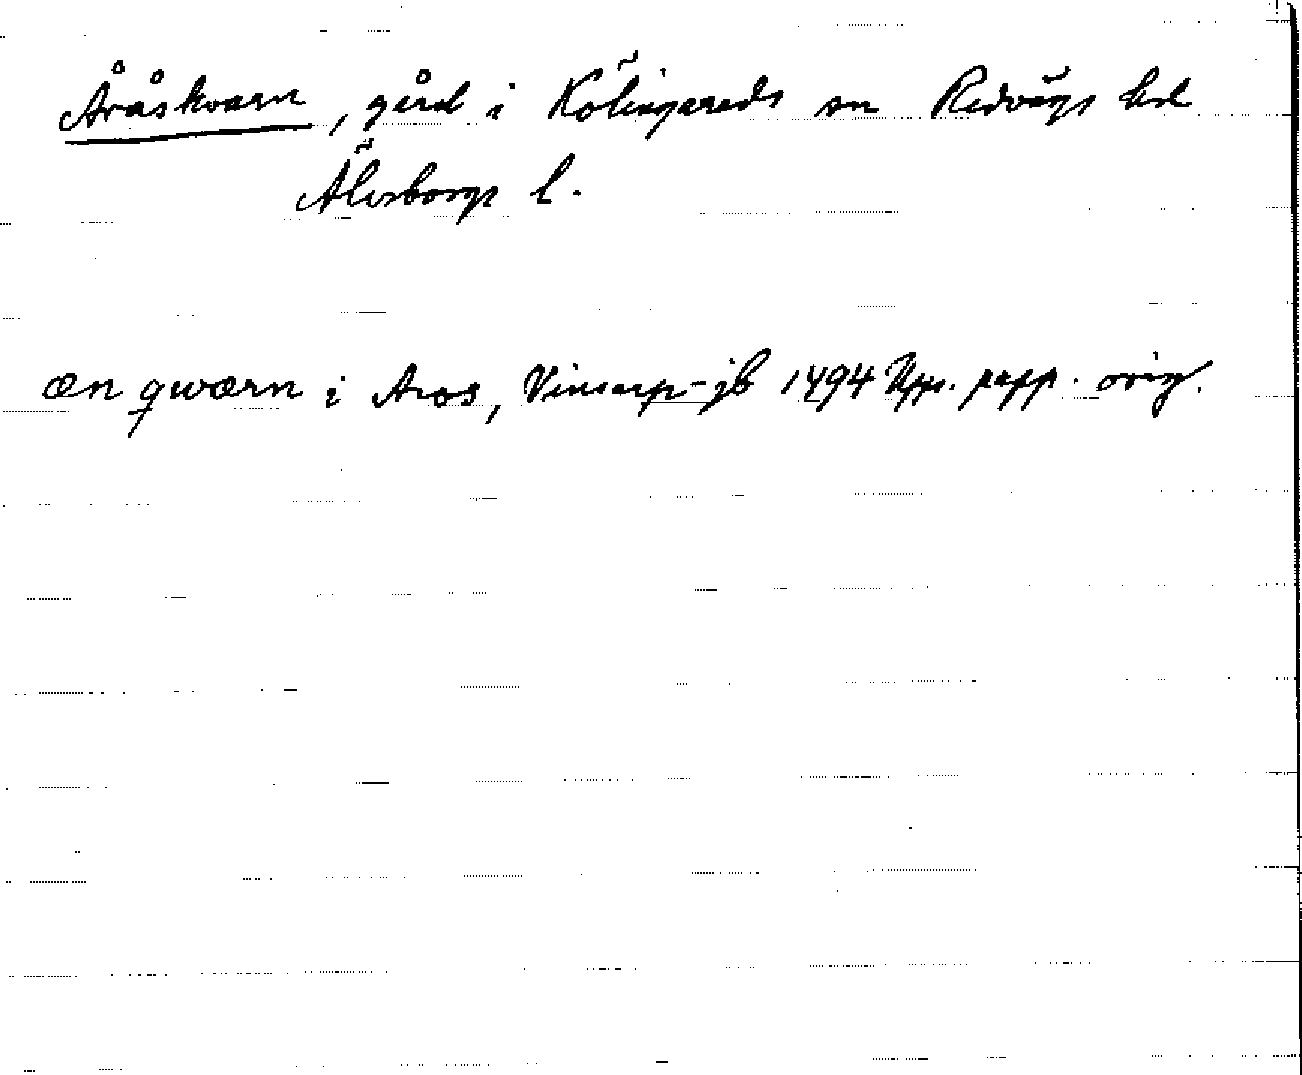 Åråskvarn, gård i Kölingareds sn Redvägs hd
Älvsborgs l.
æn qwærn i Aros, Vinsarp-jb 1494 Upps. papp. orig.